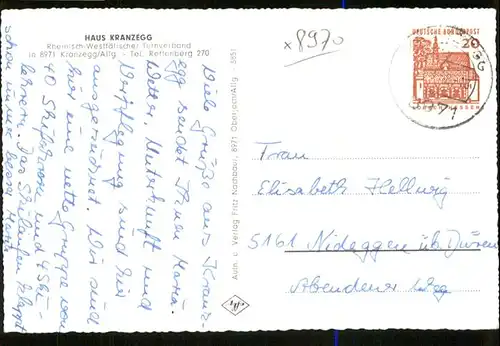 HAUS KRANZEGG
Rheinisch-Westfälischer Turnverband
in 8971 Kranzegg/Allg - Tel. Rettenberg 270
Viele Grüße aus Kranz-
egg sendet Ihnen Maria.
Wetter, Unterkunft und
Verpflegung sind hier
ausgezeichnet. Wir sind
hier eine nette Gruppe von
40 und 4 Ski-
lehrern. Das Skilaufen klappt
schon immer besser. Maria
Aufn. u. Verlag Fritz Nachbaur, 8971 Obermaiselstein/Allg
x 8970
DEUTSCHE BUNDESPOST
20
71
Frau
Elisabeth Hellwig
5161 Nideggen üb. Düren
Abendener Weg